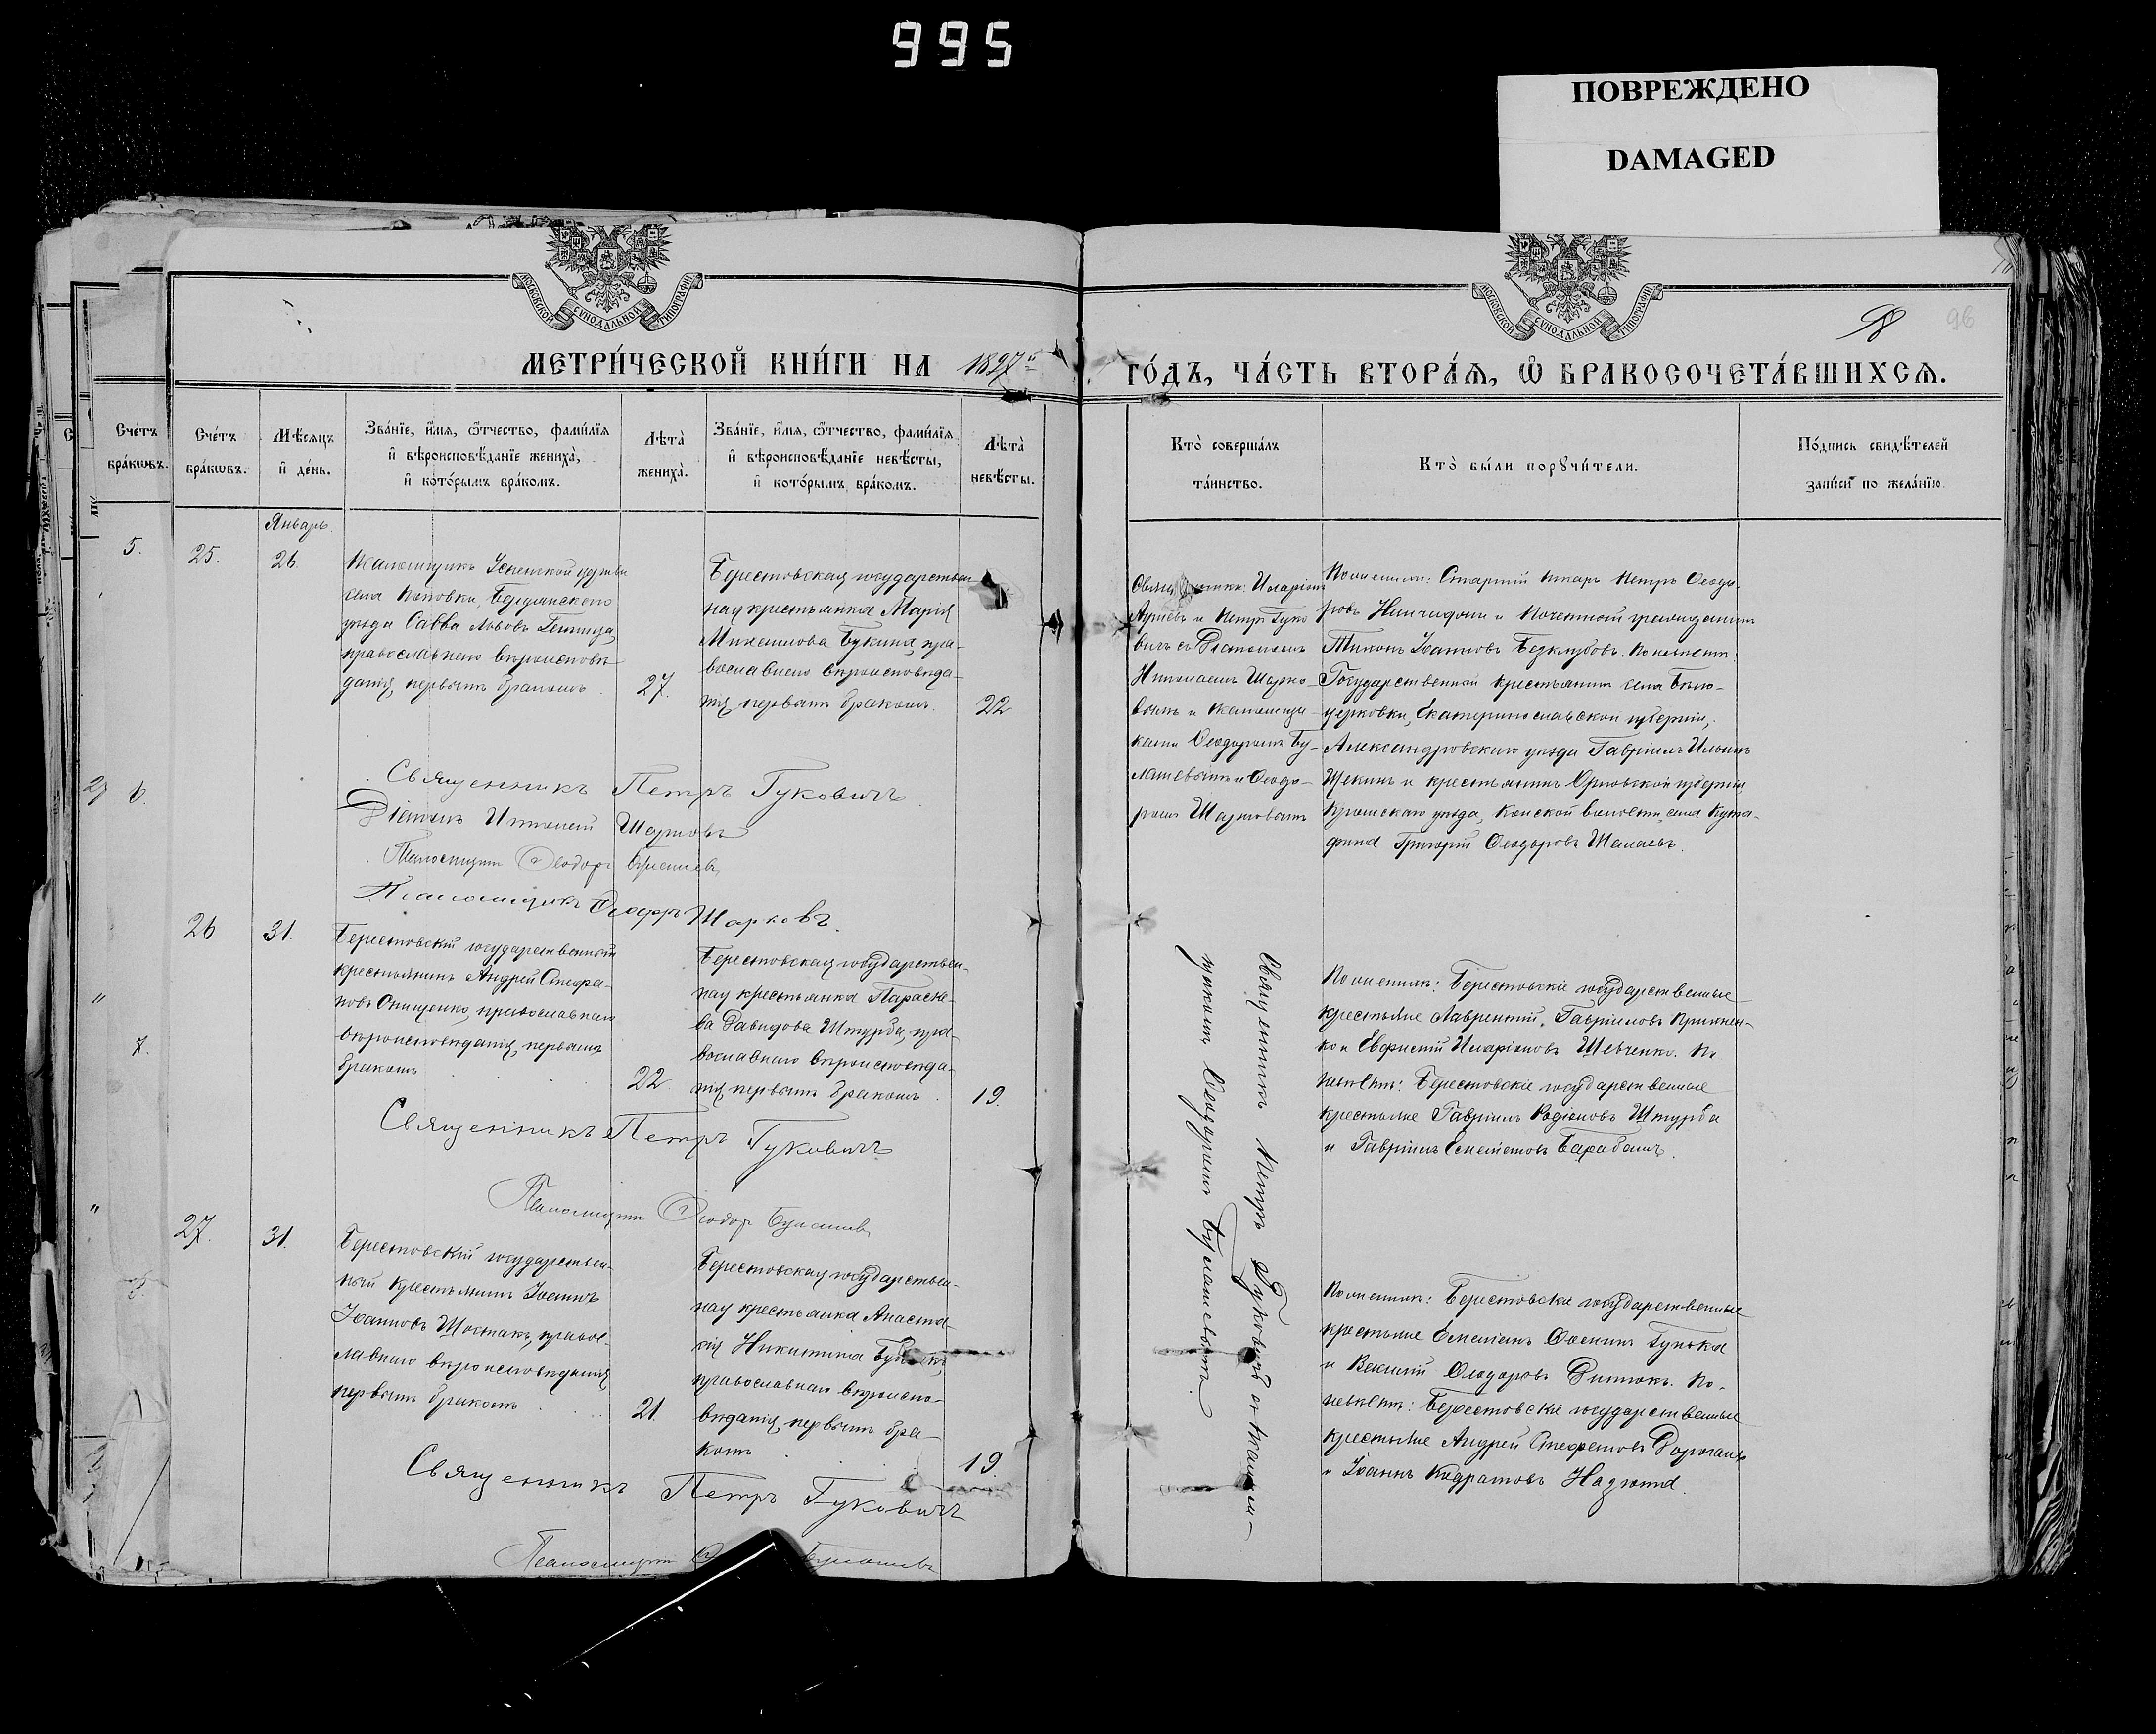 995
ПОВРЕЖДЕНО
DAMAGED
МОСКОВСКОЙ СУНОДАЛЬНОЙ ТИПОГРАФІИ
МОСКОВСКОЙ СУНОДАЛЬНОЙ ТИПОГРАФІИ
98
96
МЕТРИ́ЧЕСКОЙ КНИ́ГИ НА 1897й
ГО́ДЪ, ЧА́СТЬ ВТОРА́Ѧ, Ѽ БРАКОСОЧЕТА́ВШИХСѦ.
Сче́тъ бра́кωвъ.
Сче́тъ бра́кωвъ.
Мѣ́сяцъ и҆ де́нь.
Зва́нїе, и҆́мя, ѻ҆́тчество, фами́лїя
и҆ вѣроисповѣ́данїе жениха̀,
и҆ кото́рымъ бра́комъ.
Лѣта̀ жениха̀.
Зва́нїе, и҆́мя, ѻ҆́тчество, фами́лїя
и҆ вѣроисповѣ́данїе невѣ́сты,
и҆ кото́рымъ бра́комъ.
Лѣта̀ невѣ́сты.
Кто̀ соверша́лъ
та́инство.
Кто̀ бы́ли порꙋчи́тели.
По́дпись свидѣ́телей
за́писи по жела́нїю.
Январь.
5.
6.
7.
25.
26.
Псаломщикъ Успенской церкви
села Поповки, Бердянскаго
уѣзда Савва Львовъ
православнаго вѣроисповѣ-
данія, первымъ бракомъ.
27.
Берестовская государствен-
ная крестьянка Марія
Михаилова Букина, пра-
вославнаго вѣроисповѣда-
нія, первымъ бракомъ.
22
Иларіонъ
и Петръ Гуко
вичъ съ Діакономъ
Николаемъ Шарко-
вымъ и Псаломщи-
ками Ѳеодоромъ Бу-
лашевымъ и Ѳеодо-
ромъ Шарковымъ
По женихѣ: Старшій писарь Петръ Ѳеодо-
ровъ и Почетный гражданинъ
Тихонъ Іоанновъ По невѣстѣ:
Государственной крестьянинъ села Бѣло-
церковки, Екатеринославской губерніи,
Александровскаго уѣзда Гавріилъ Ильинъ
Щекинъ и крестьянинъ Орловской губерніи
Кромскаго уѣзда, волости, села
Григорій Ѳеодоровъ
Священникъ Петръ Гуковичъ.
Діаконъ Николай Шарковъ
Псаломщикъ Ѳеодоръ Булашевъ
Псаломщикъ Ѳеодоръ Шарковъ.
26
31.
Берестовскій государственный
крестьянинъ Андрей Стефа-
новъ Онищенко, православнаго
вѣроисповѣданія, первымъ
бракомъ
22.
Берестовская государствен-
ная крестьянка Параске-
ва Давидова Штурба, пра-
вославнаго вѣроисповѣда-
нія, первымъ бракомъ.
19.
Священникъ Петръ Гуковичъ съ Псалом-
щикомъ Ѳеодоромъ Булашевымъ.
По женихѣ: Берестовскіе государственные
крестьяне Лаврентій Гавріиловъ
и Евфимій Иларіоновъ Шевченко. По
невѣстѣ: Берестовскіе государственные
крестьяне Гавріилъ Родіоновъ Штурба
и Гавріилъ Барабашъ.
Священникъ Петръ Гуковичъ
Псаломщикъ Ѳеодоръ Булашевъ
27.
31.
Берестовскій государствен-
ный крестьянинъ Іоаннъ
Іоанновъ Шостакъ, правос-
лавнаго вѣроисповѣданія
первымъ бракомъ
21.
Берестовская государствен-
ная крестьянка Анаста-
сія Никитина
православнаго вѣроиспо-
вѣданія, первымъ бра-
комъ
19.
По женихѣ: Берестовскіе государственные
крестьяне Емеліанъ Гунька
и Ѳеодоровъ По
невѣстѣ: Берестовскіе государственные
крестьяне Андрей Стефановъ
и Іоаннъ Кодратовъ Надюта.
Священникъ Петръ Гуковичъ
Псаломщикъ Булашевъ